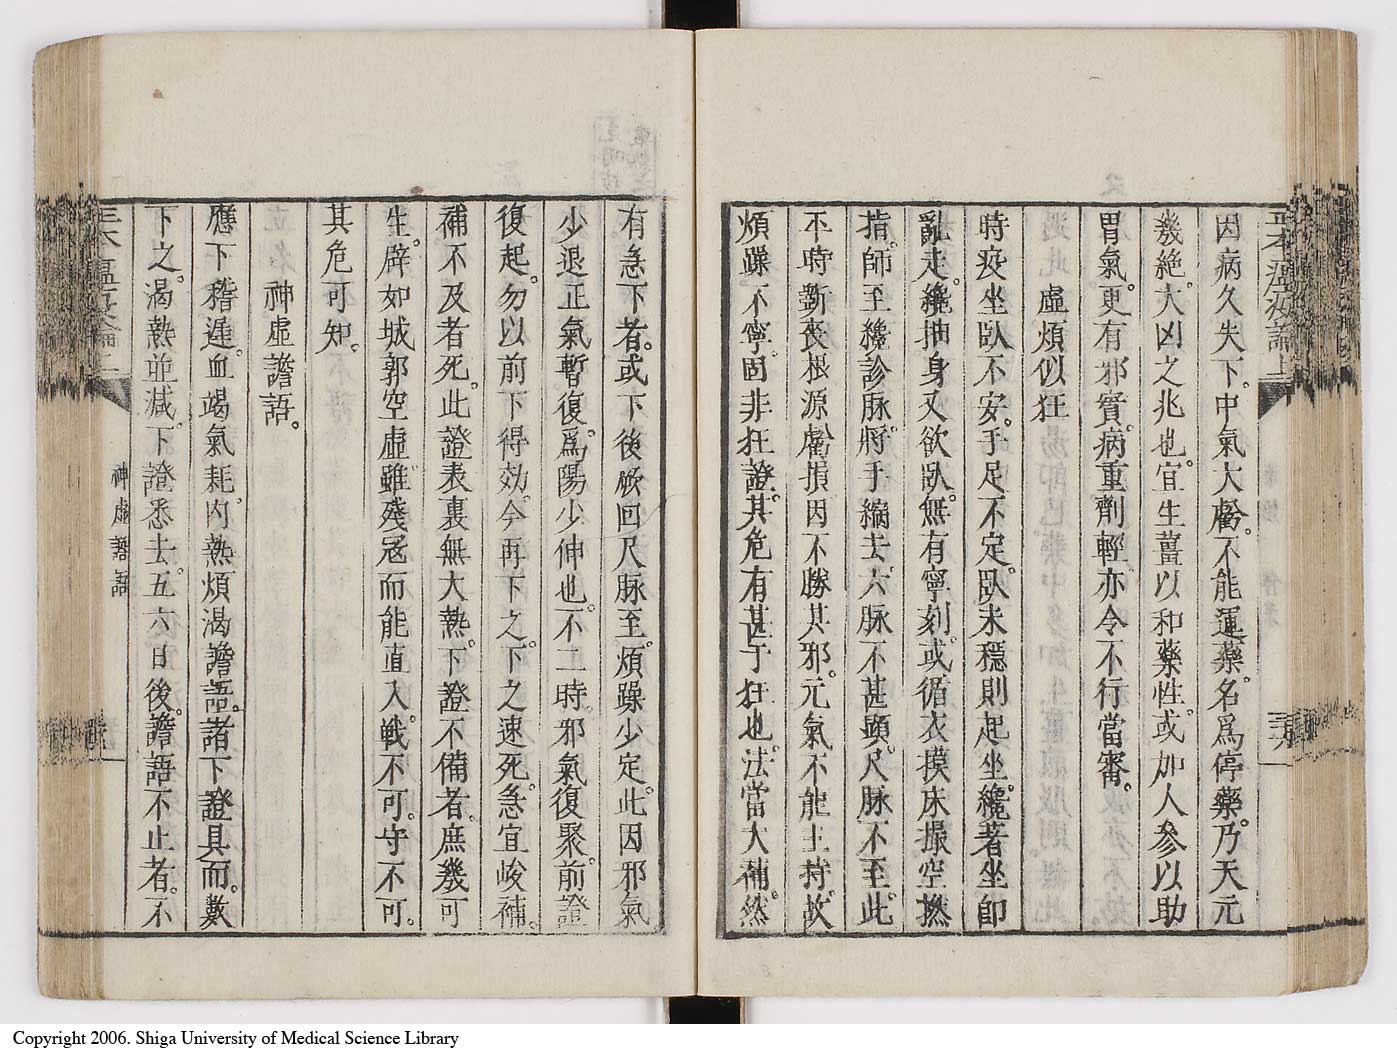 因病久失下。中氣大虧。不能運藥。名爲停藥。乃天元
幾絶。大凶之兆也。宜生薑以和藥性。或加人參以助
胃氣。更有邪實。病重劑輕。亦令不行。當審。
虛煩似狂
時疫坐臥不安。手足不定。臥未穩則起坐。纔著坐即
亂走。纔抽身又欲臥。無有寧刻。或循衣摸床。撮空撚
指。師至纔診脉。將手縮去。六脉不甚顯。尺脉不至。此
平時斵喪。根源虧損。因不勝其邪。元氣不能主持。故
煩躁不寧。固非狂證。其危有甚于狂也。法當大補。然
有急下者。或下後厥回尺脉至。煩躁少定。此因邪氣
少退。正氣暫復。爲陽少伸也。不二時。邪氣復聚。前證
復起。勿以前下得効。今再下之。下之速死。急宜峻補。
補不及者死。此證表裏無大熱。下證不備者。庶幾可
生。辟如城郭空虛。雖殘冦而能直入。戦不可。守不可。
其危可知。
神虛譫語。
應下稽遲。血竭氣耗。内熱煩渴譫語。諸下證具而。數
下之。渴熱並減。下證悉去。五六日後。譫語不止者。不
神虛譫語
Copyright 2006. Shiga University of Medical Science Library